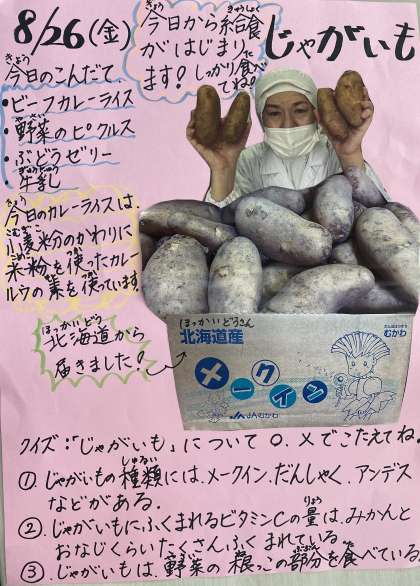 8/26(金)
きょう きゅうしょく
今日から給食
がはじまり
ます! しっかり食べ
てね。
じゃがいも
きょう
今日のこんだて、
・ビーフカレーライス
やさい
・野菜のピクルス
・ぶどうゼリー
ぎゅうにゅう
・牛乳
きょう
今日のカレーライスは、
こむぎこ
小麦粉のかわりに
こめこ
米粉を使ったカレー
ルウの素を使っています
ほっかいどう
北海道から
とど
届きました!
ほっかいどうさん
北海道産
メークイン
JAむかわ
むかわ
クイズ:「じゃがいも」について○、×でこたえてね。
しゅるい
①.じゃがいもの種類には、メークイン、だんしゃく、アンデス
などがある。
りょう
②.じゃがいもにふくまれるビタミンCの量は、みかんと
おなじくらいたくさんふくまれている
やさい ね ぶぶん た
③.じゃがいもは、野菜の根っこの部分を食べている